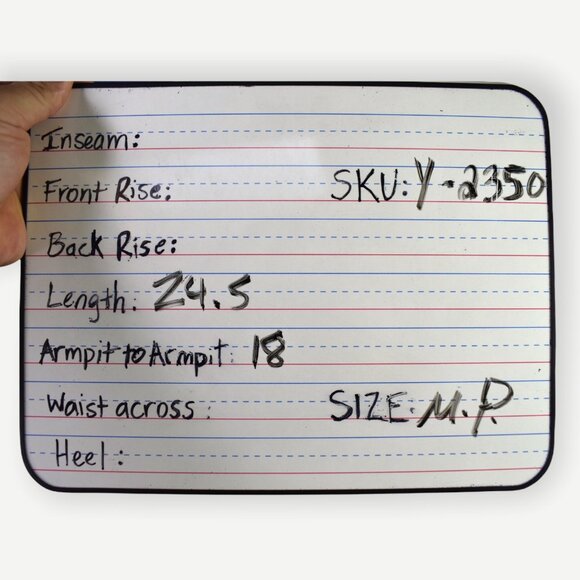 Inseam:
Front Rise:
SKU: Y-2350
Back Rise:
Length: 24.5
Armpit to Armpit: 18
Waist across:
SIZE: M.P.
Heel: